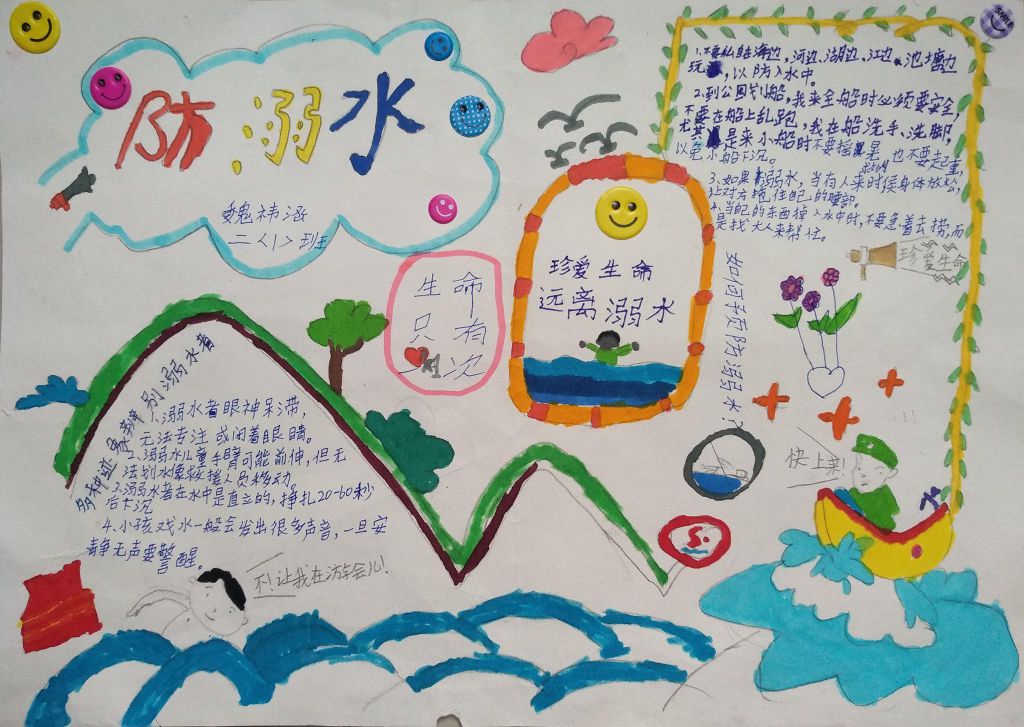 防溺水
魏祎涵
二〈1〉班
生命
只有
一次
珍爱生命
远离溺水
1.不要私自在海边,河边、湖边、江边、池塘边
玩,以防入水中。
2.到公园划船,我来全船时必须要安全,
不要在船上乱跑,我在船洗手、洗脚,
尤其是来小船时不要摇晃 也不要起重,
以免小船下沉。
3.如果溺水,当有人来救的时候身体放松,
让对方拖住自己的腰部。
4.当自己的东西掉入水中时,不要急着去捞,而
是找大人来帮忙。
珍爱生命
SMILE
如何预防溺水?
快上来!
多种迹象辨别溺水者
1.溺水者眼神呆滞,
无法专注或闭着眼睛。
2.溺水儿童手臂可能前伸,但无
法划水像救援人员移动。
3.溺水者在水中是直立的,挣扎20-60秒
后下沉
4.小孩戏水一般会发出很多声音,一旦安
静无声要警醒。
不!让我在游会儿!